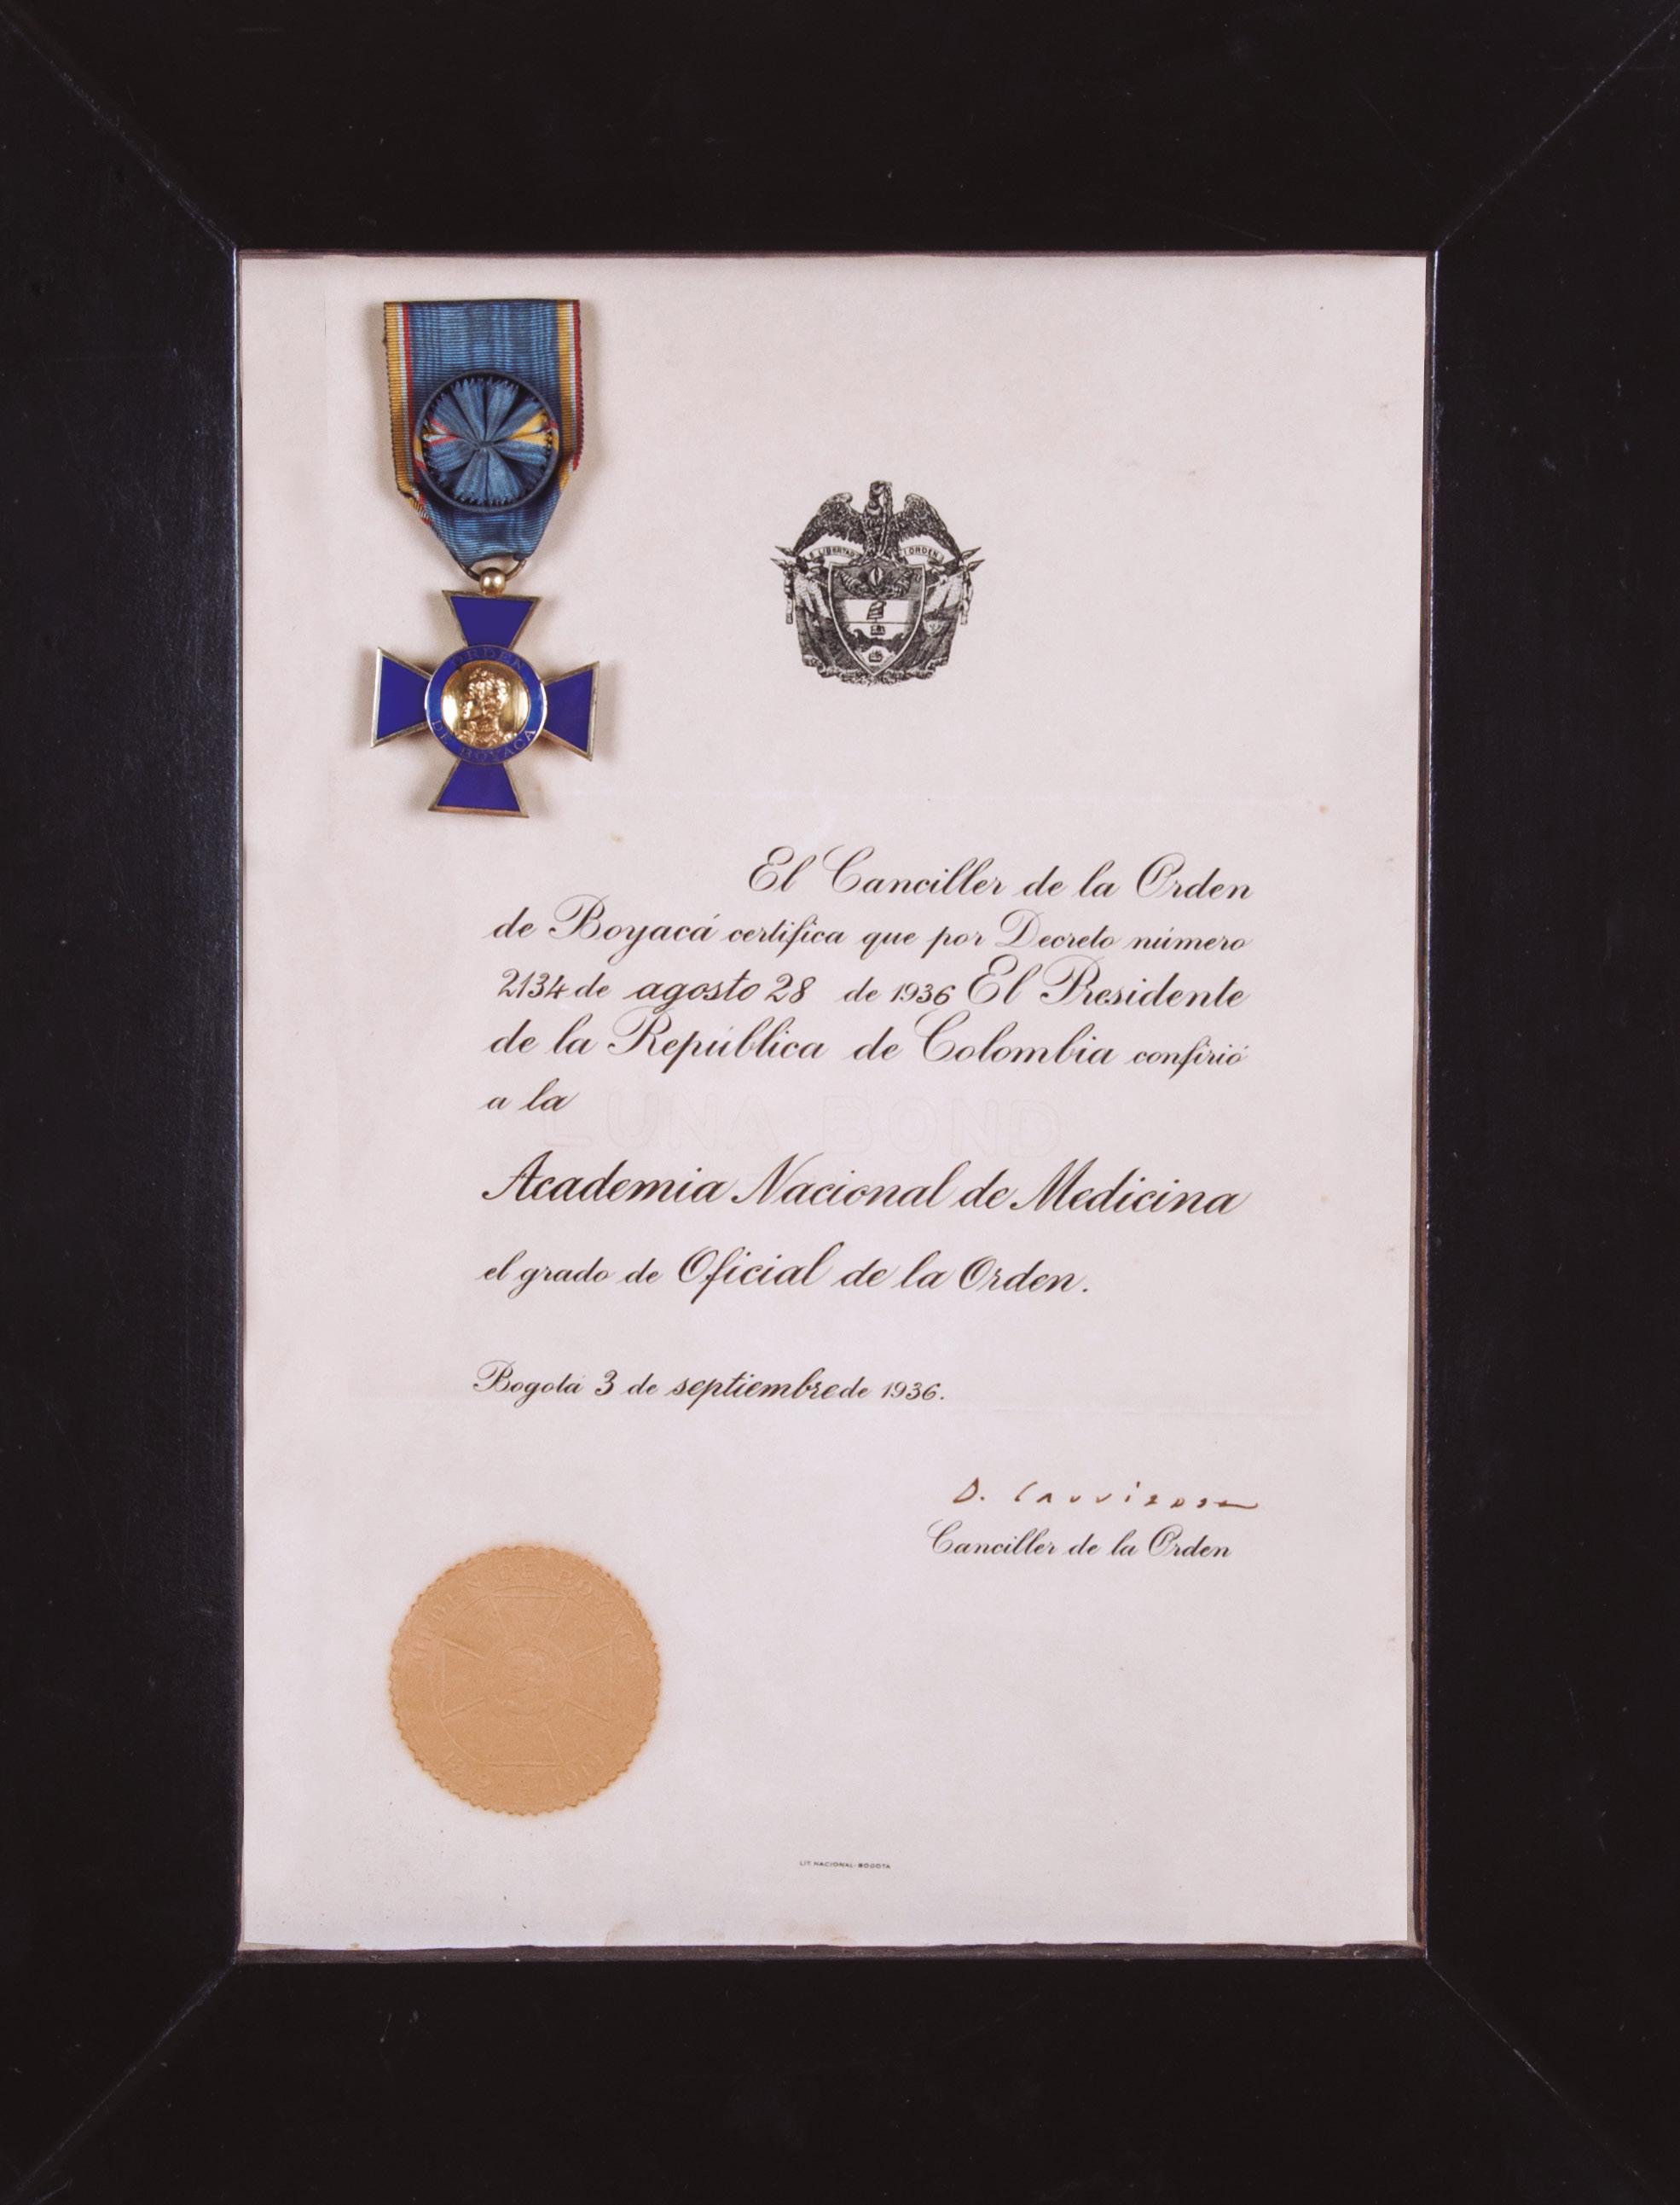 LIBERTAD Y ORDEN
ORDEN
DE BOYACA
El Canciller de la Orden
de Boyacá certifica que por Decreto número
2134 de agosto 28 de 1936 El Presidente
de la República de Colombia confirió
a la
LUNA BOND
Academia Nacional de Medicina
el grado de Oficial de la Orden.
Bogotá 3 de septiembre de 1936.
Canciller de la Orden
ORDEN DE BOYACA
LIT. NACIONAL-BOGOTA